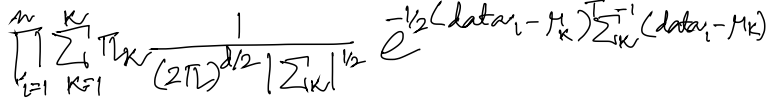 \prod_{i=1}^{n} \sum_{K=1}^{K} \pi_K \frac{1}{(2\pi)^{d/2} |\Sigma_K|^{1/2}} e^{-1/2(data_i - \mu_K)^T \Sigma_K^{-1} (data_i - \mu_K)}